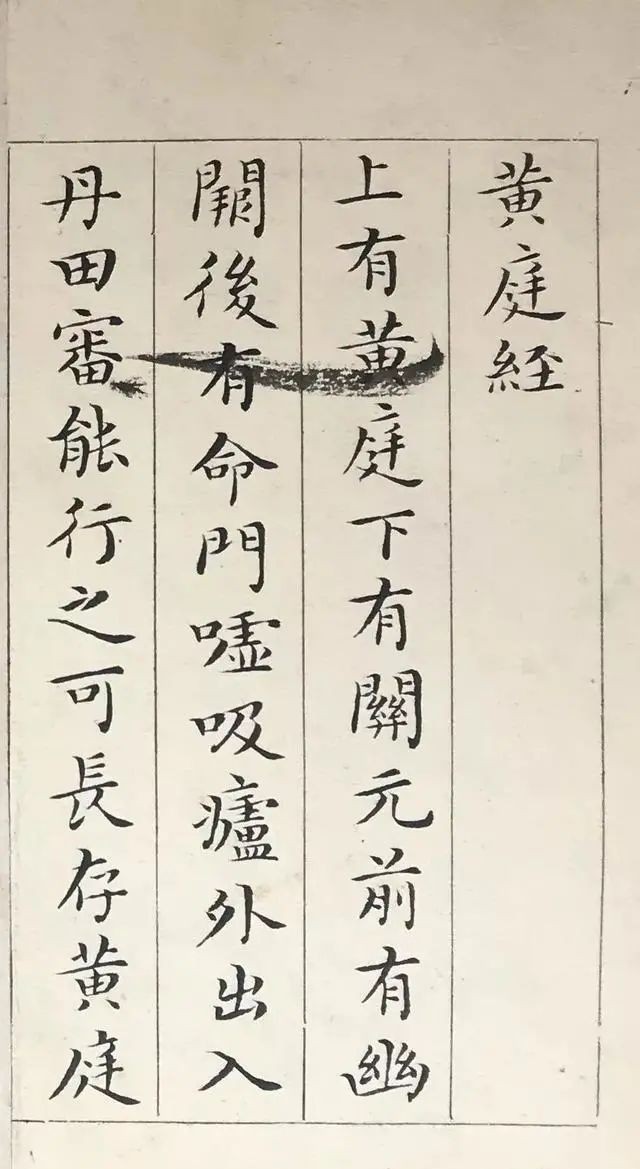 黄庭経
上有黄庭下有關元前有幽
闕後有命門噓吸廬外出入
丹田審能行之可長存黄庭